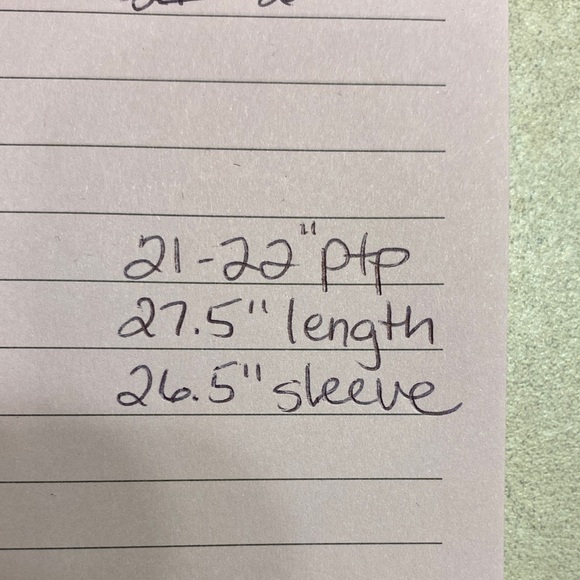 21-22" ptp
27.5" length
26.5" sleeve